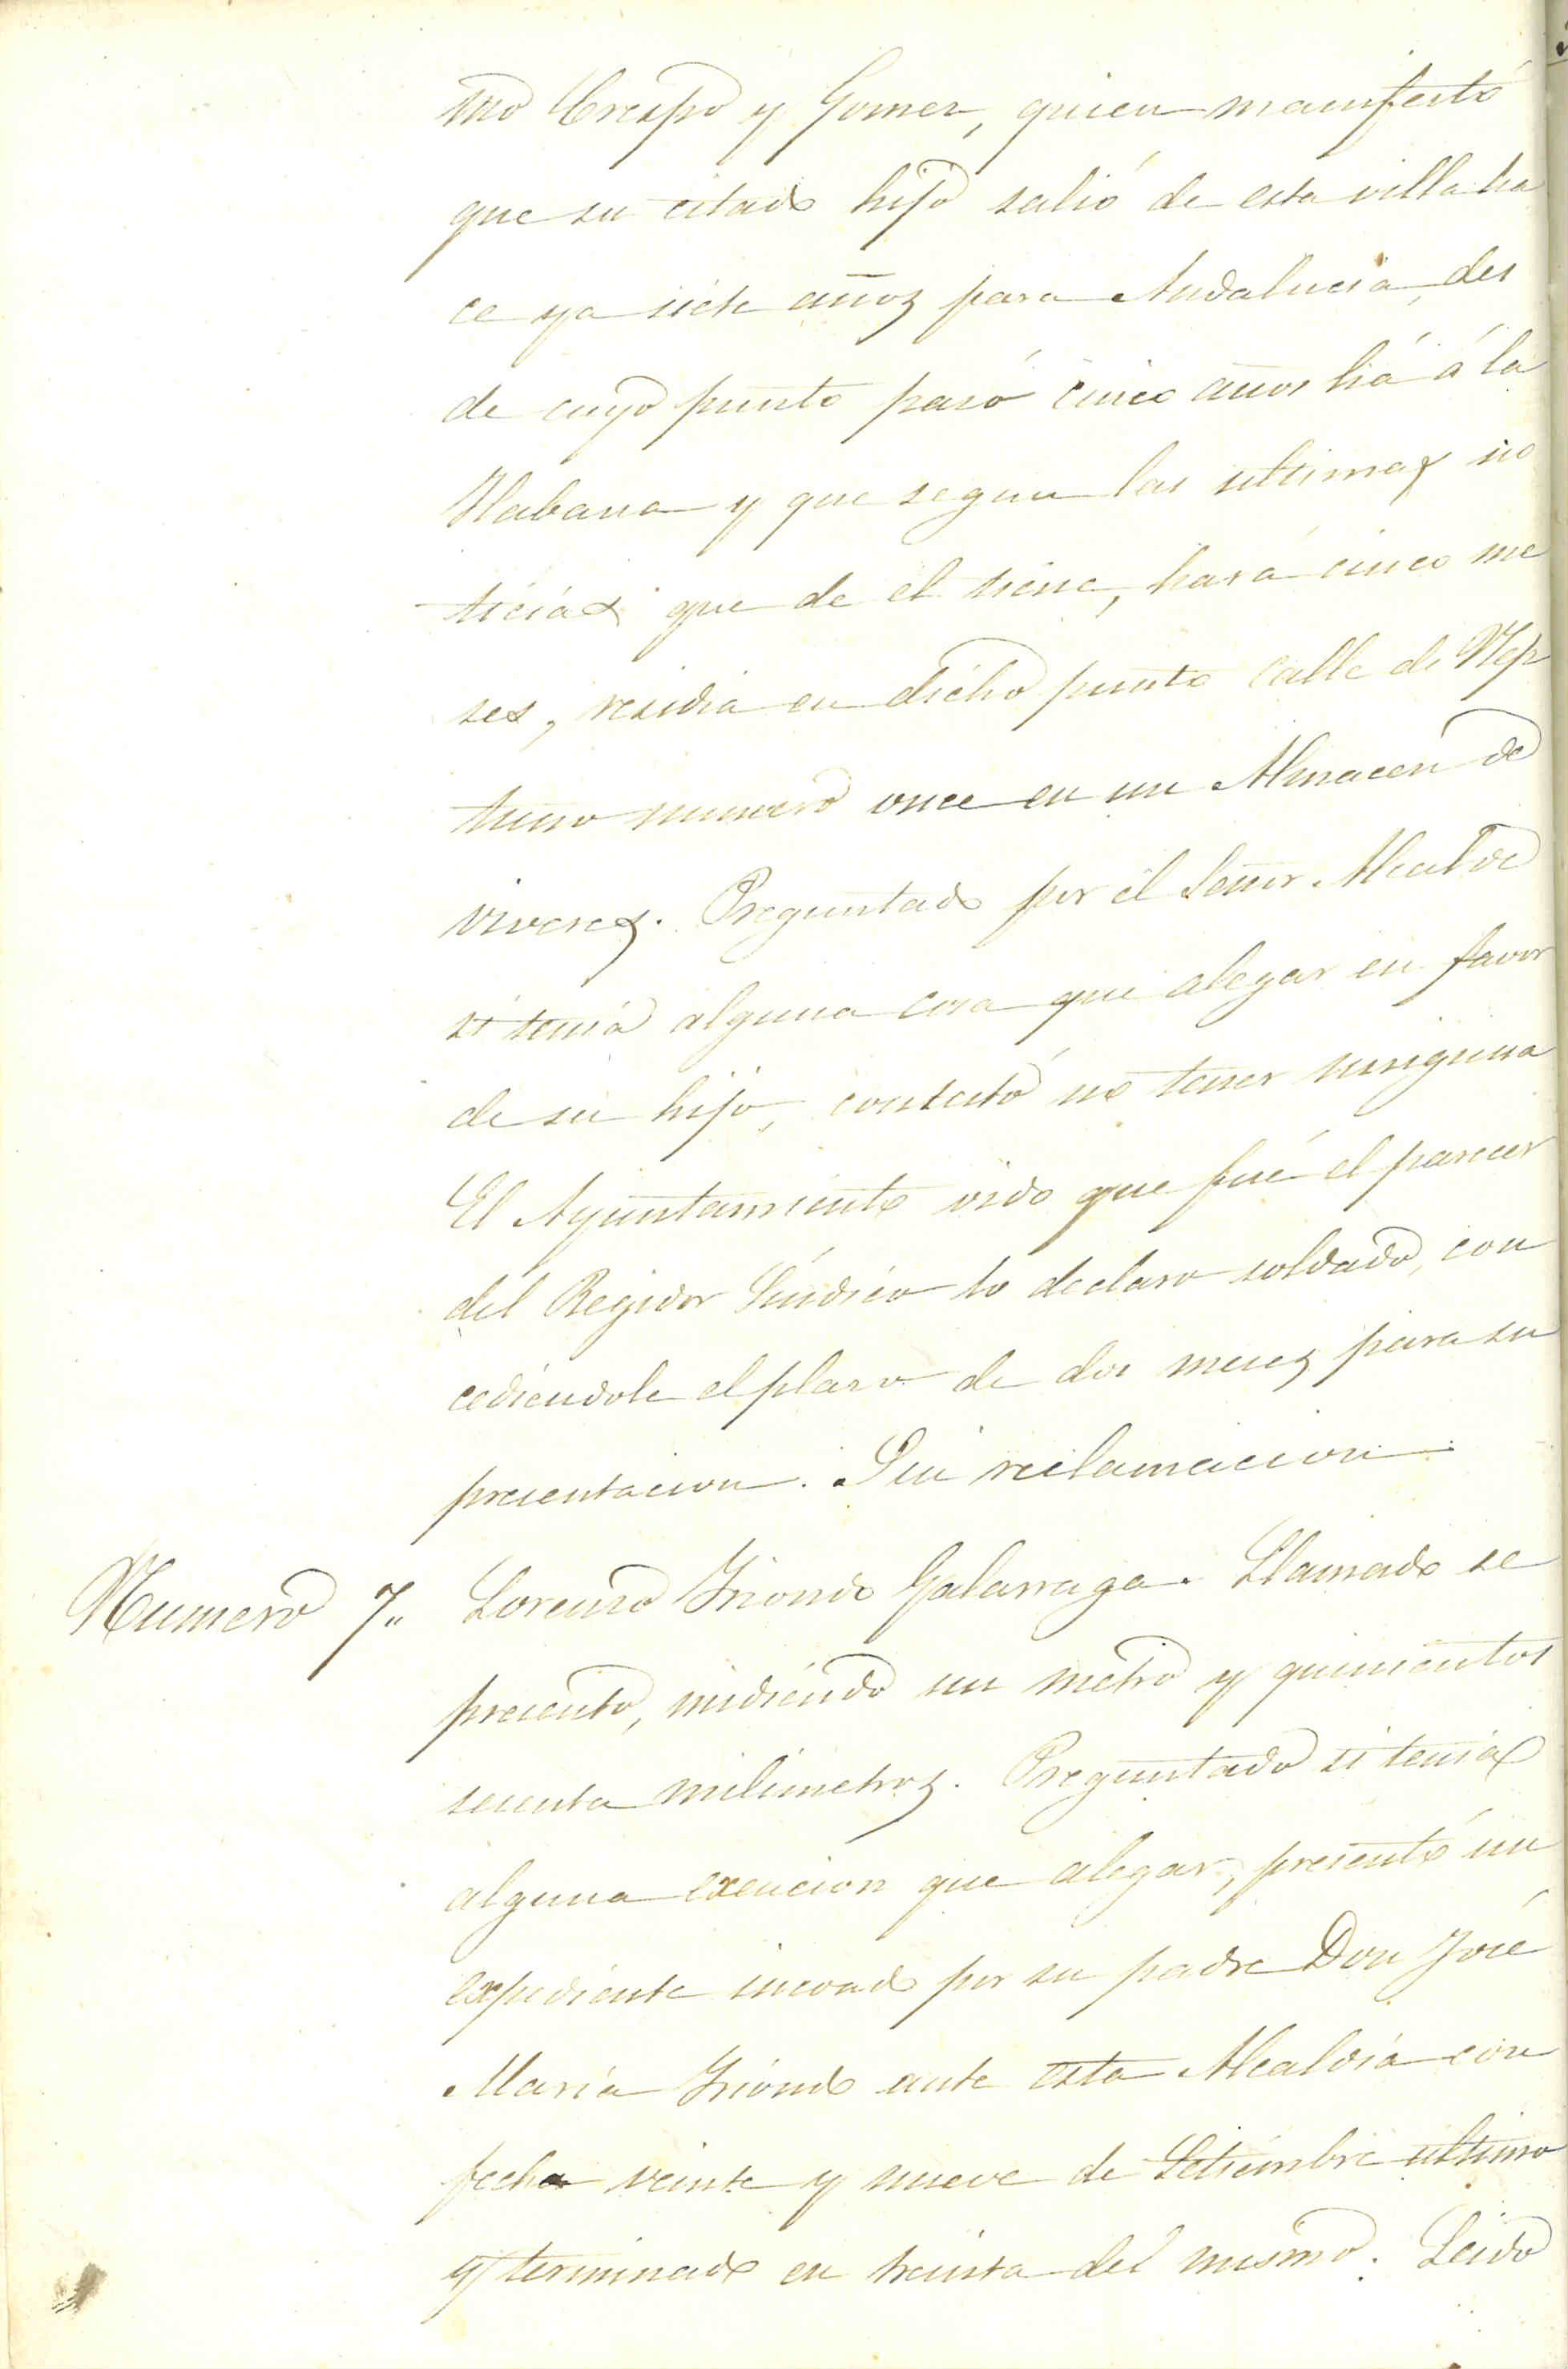 mo Crespo y Gomez, quien manifestó
que su citado hijo salió de esta villa ha
ce ya siete años para Andalucia, des
de cuyo punto pasó cinco años há á la
Habana y que segun las ultimas no
ticias que de el tiene, hará cinco me
ses, residia en dicho punto calle de Nep
tuno numero once en un Almacen de
viveres. Preguntado por el Señor Alcalde
si tenia alguna cosa que alegar en favor
de su hijo, contestó no tener ninguna
El Ayuntamiento oido que fué el parecer
del Regidor Síndico lo declaro soldado, con
cediéndole el plazo de dos meses para su
presentacion. Sin reclamacion.
Numero 7" Lorenzo Iriondo Galarraga. Llamado se
presento, midiendo un metro y quinientos
sesenta milimetros. Preguntado si tenia
alguna exencion que alegar, presentó un
expediente incoado por su padre Don José
María Iriondo ante esta Alcaldía con
fecha veinte y nueve de Setiembre ultimo
y terminado en treinta del mismo. Leido